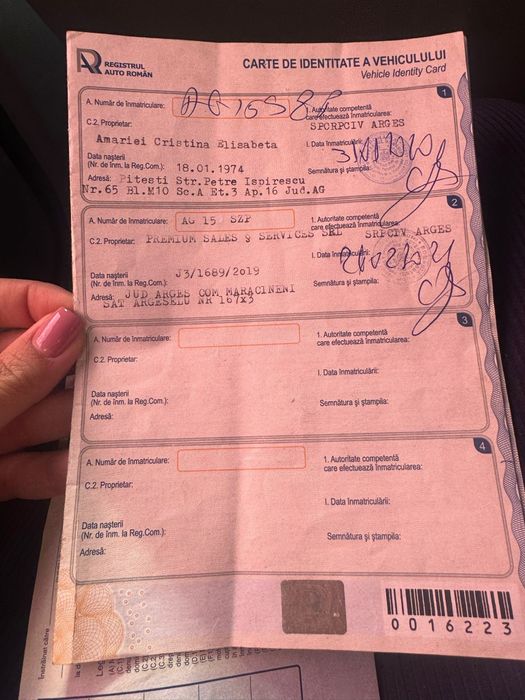 REGISTRUL
AUTO ROMÂN
CARTE DE IDENTITATE A VEHICULULUI
Vehicle Identity Card
1
A. Număr de înmatriculare:
1. Autoritate competentă
care efectuează înmatricularea:
SPCRPCIV ARGES
C.2. Proprietar:
Amariei Cristina Elisabeta
I. Data înmatriculării:
Data nașterii
(Nr. de înm. la Reg.Com.): 18.01.1974
Semnătura și ștampila:
Adresă: Pitesti Str.Petre Ispirescu
Nr.65 Bl.M10 Sc.A Et.3 Ap.16 Jud.AG
2
A. Număr de înmatriculare: AG 15 SZP
1. Autoritate competentă
care efectuează înmatricularea:
C.2. Proprietar: PREMIUM SALES & SERVICES SRL SRPCIV ARGES
I. Data înmatriculării:
Data nașterii
(Nr. de înm. la Reg.Com.): J3/1689/2019
Semnătura și ștampila:
Adresă: JUD ARGES COM MARACINENI
SAT ARGESELU NR 167X3
3
A. Număr de înmatriculare:
1. Autoritate competentă
care efectuează înmatricularea:
C.2. Proprietar:
I. Data înmatriculării:
Data nașterii
(Nr. de înm. la Reg.Com.):
Semnătura și ștampila:
Adresă:
4
A. Număr de înmatriculare:
1. Autoritate competentă
care efectuează înmatricularea:
C.2. Proprietar:
I. Data înmatriculării:
Data nașterii
(Nr. de înm. la Reg.Com.):
Semnătura și ștampila:
Adresă:
0016223
Înstrăinat către